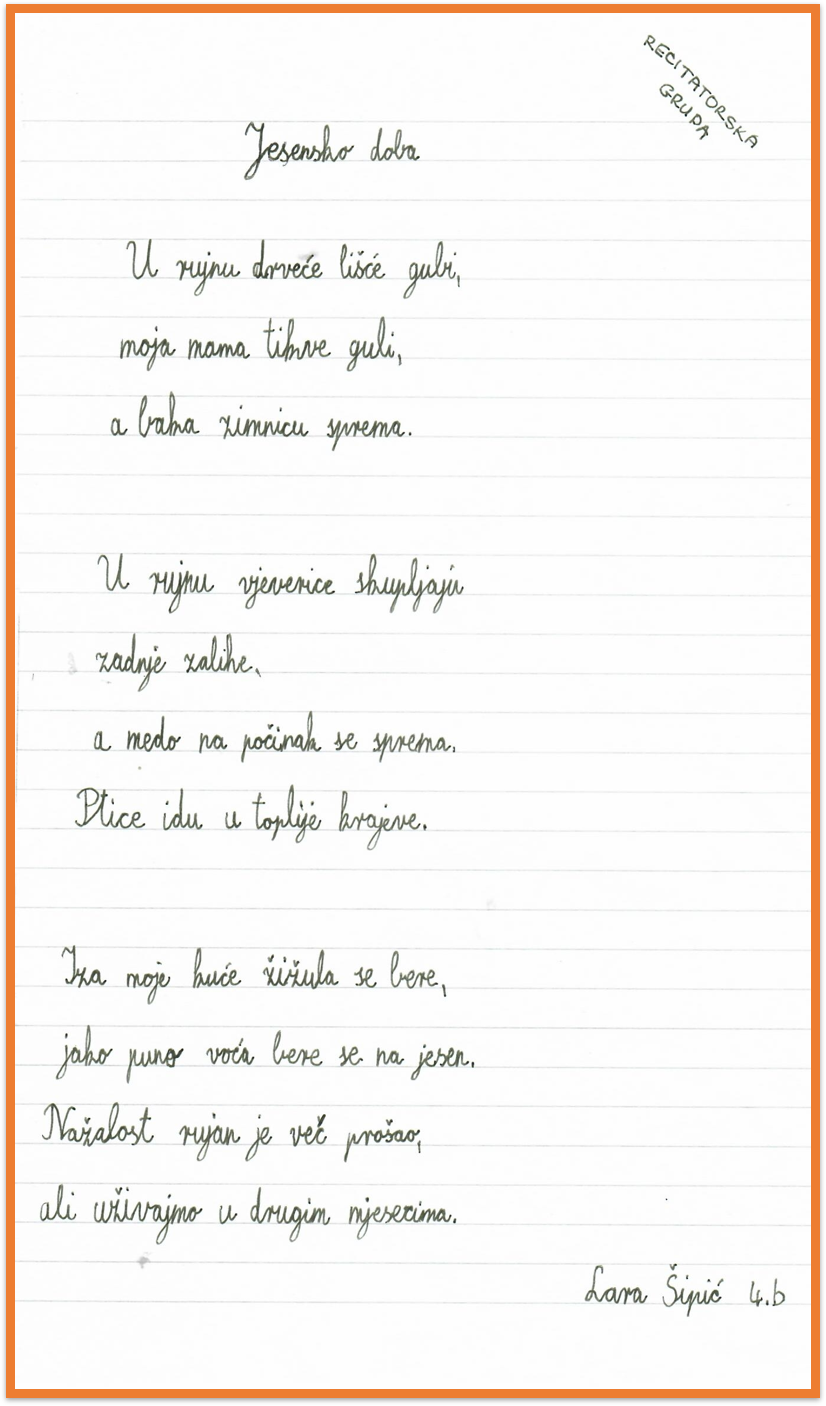 RECITATORSKA
GRUPA
Jesensko doba
U rujnu drveće lišće gubi,
moja mama tikve guli,
a baka zimnicu sprema.
U rujnu vjeverice skupljaju
zadnje zalihe,
a medo na počinak se sprema.
Ptice idu u toplije krajeve.
Iza moje kuće žižula se bere,
jako puno voća bere se na jesen.
Nažalost rujan je več prošao,
ali uživajmo u drugim mjesecima.
Lara Šipić 4.b